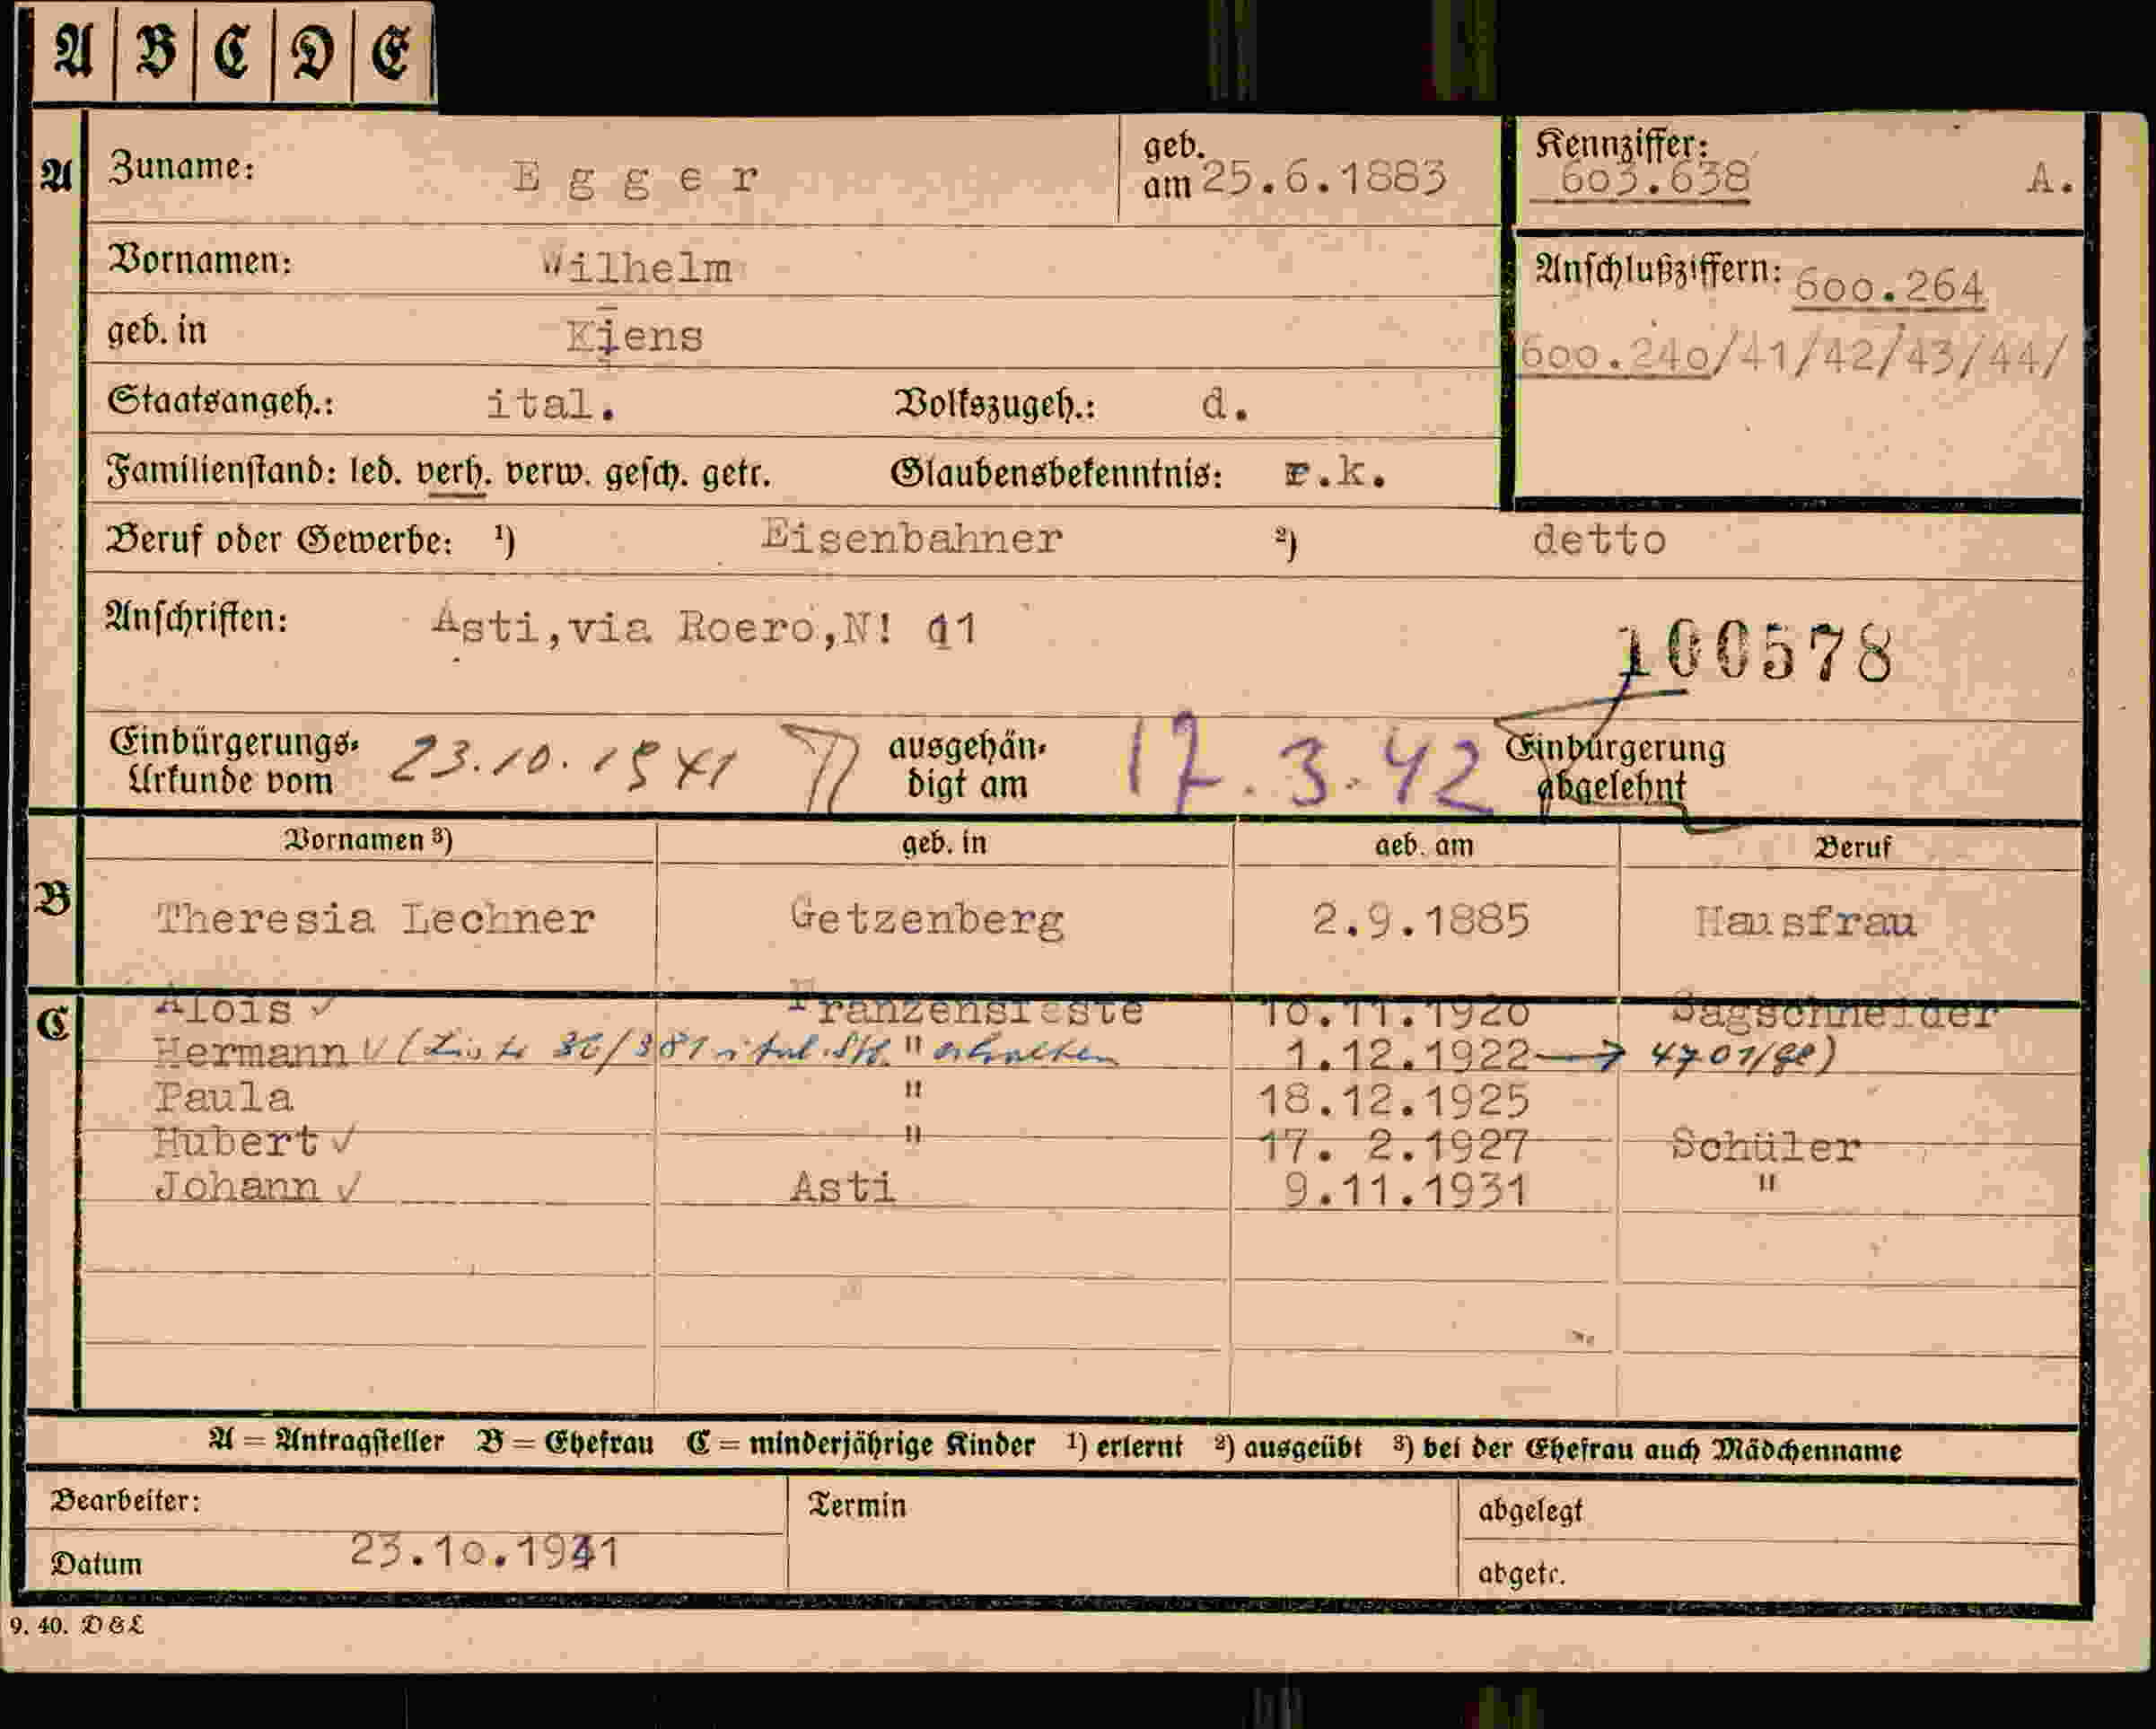 A B C D E
A Zuname: Egger geb. am 25.6.1883 Kennziffer: 603.638 A.
Vornamen: Wilhelm
Anschlußziffern: 600.264
geb. in Kiens
600.240/41/42/43/44/
Staatsangeh.: ital. Volkszugeh.: d.
Familienstand: led. verh. verw. gesch. getr. Glaubensbekenntnis: r.k.
Beruf oder Gewerbe: 1) Eisenbahner 2) detto
Anschriften: Asti,via Roero,N! 11
100578
Einbürgerungs-Urkunde vom 23.10.1941 ausgehän-digt am 17.3.42 Einbürgerung abgelehnt
Vornamen 3) geb. in geb. am Beruf
B Theresia Lechner Getzenberg 2.9.1885 Hausfrau
C Alois ✓ Franzensfeste 10.11.1920 Sagschneider
Hermann ✓ (Liste 36/381 ital. " erhalten 1.12.1922 → 4701/ge)
Paula " 18.12.1925
Hubert ✓ " 17. 2.1927 Schüler
Johann ✓ Asti 9.11.1931 "
A = Antragsteller B = Ehefrau C = minderjährige Kinder 1) erlernt 2) ausgeübt 3) bei der Ehefrau auch Mädchenname
Bearbeiter: Termin abgelegt
Datum 23.10.1941 abgetr.
9. 40. D&L